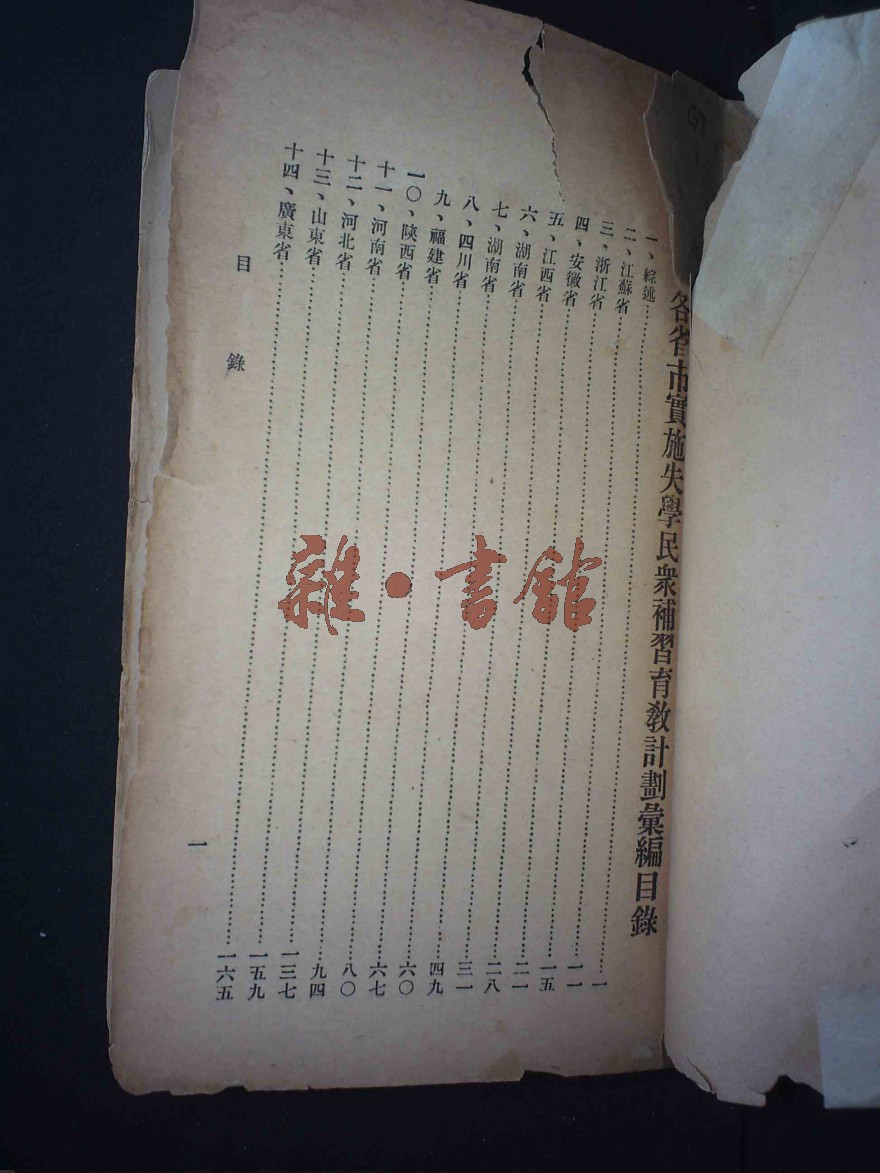 各省市實施失學民衆補習育教計劃彙編目錄
一、綜述……一
二、江蘇省……一一
三、浙江省……一五
四、安徽省……二一
五、江西省……二八
六、湖南省……三一
七、湖南省……四九
八、四川省……六〇
九、福建省……六七
一〇、陝西省……八〇
十一、河南省……九四
十二、河北省……一三七
十三、山東省……一五九
十四、廣東省……一六五
目錄
一
雜·書館